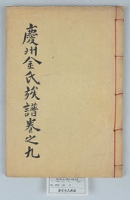 慶州金氏族譜卷之九